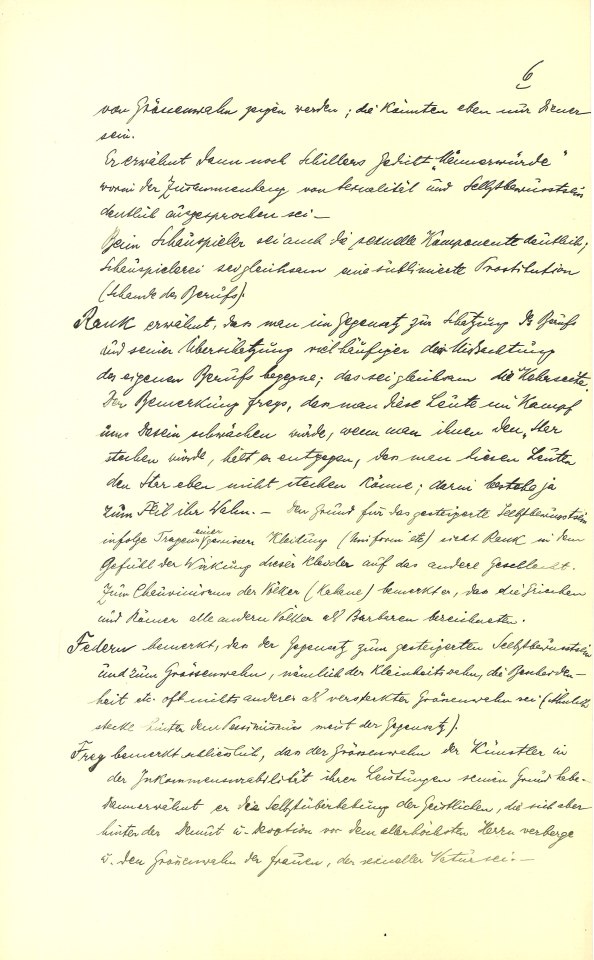 6
von Grössenwahn zeugen werden; die könnten eben nur Diener
sein.
Er erwähnt dann noch Schillers Gedicht „Männerwürde“
worin der Zusammenhang von Sexualität und Selbstbewusstsein
deutlich ausgesprochen sei —
Beim Schauspieler sei auch die sexuelle Komponente deutlich;
Schauspielerei sei gleichsam eine sublimierte Prostitution
(Schande des Berufs).
Rank erwähnt, dass man im Gegensatz zur Schätzung des Berufs
und seiner Überschätzung viel häufiger der Missachtung
des eigenen Berufs begegne; das sei gleichsam die Kehrseite.
Der Bemerkung Freys, dass man diese Leute im Kampf
ums Dasein schwächen würde, wenn man ihnen den „Star
stechen würde, hält er entgegen, dass man diesen Leuten
den Star eben nicht stechen könne; darin bestehe ja
zum Teil ihr Wahn. — Den Grund für das gesteigerte Selbstbewusstsein
infolge Tragens einer gewissen Kleidung (Uniform etc) sieht Rank in dem
Gefühl der Wirkung dieser Kleider auf das andere Geschlecht.
Zum Chauvinismus der Völker (Kahane) bemerkt er, dass die Griechen
und Römer alle andern Völker als Barbaren bezeichneten.
Federn bemerkt, dass der Gegensatz zum gesteigerten Selbstbewusstsein
und zum Grössenwahn, nämlich der Kleinheitswahn, die Bescheiden-
heit etc. oft nichts anderes als versteckter Grössenwahn sei (Ähnlich
stecke hinter dem Pessimismus meist der Gegensatz).
Frey bemerkt schliesslich, dass der Grössenwahn der Künstler in
der Inkommensurabilität ihrer Leistungen seinen Grund habe.
Dann erwähnt er die Selbstüberhebung der Geistlichen, die sich aber
hinter der Demut u. Devotion vor dem allerhöchsten Herrn verberge
u. den Grössenwahn der Frauen, der sexueller Natur sei. —